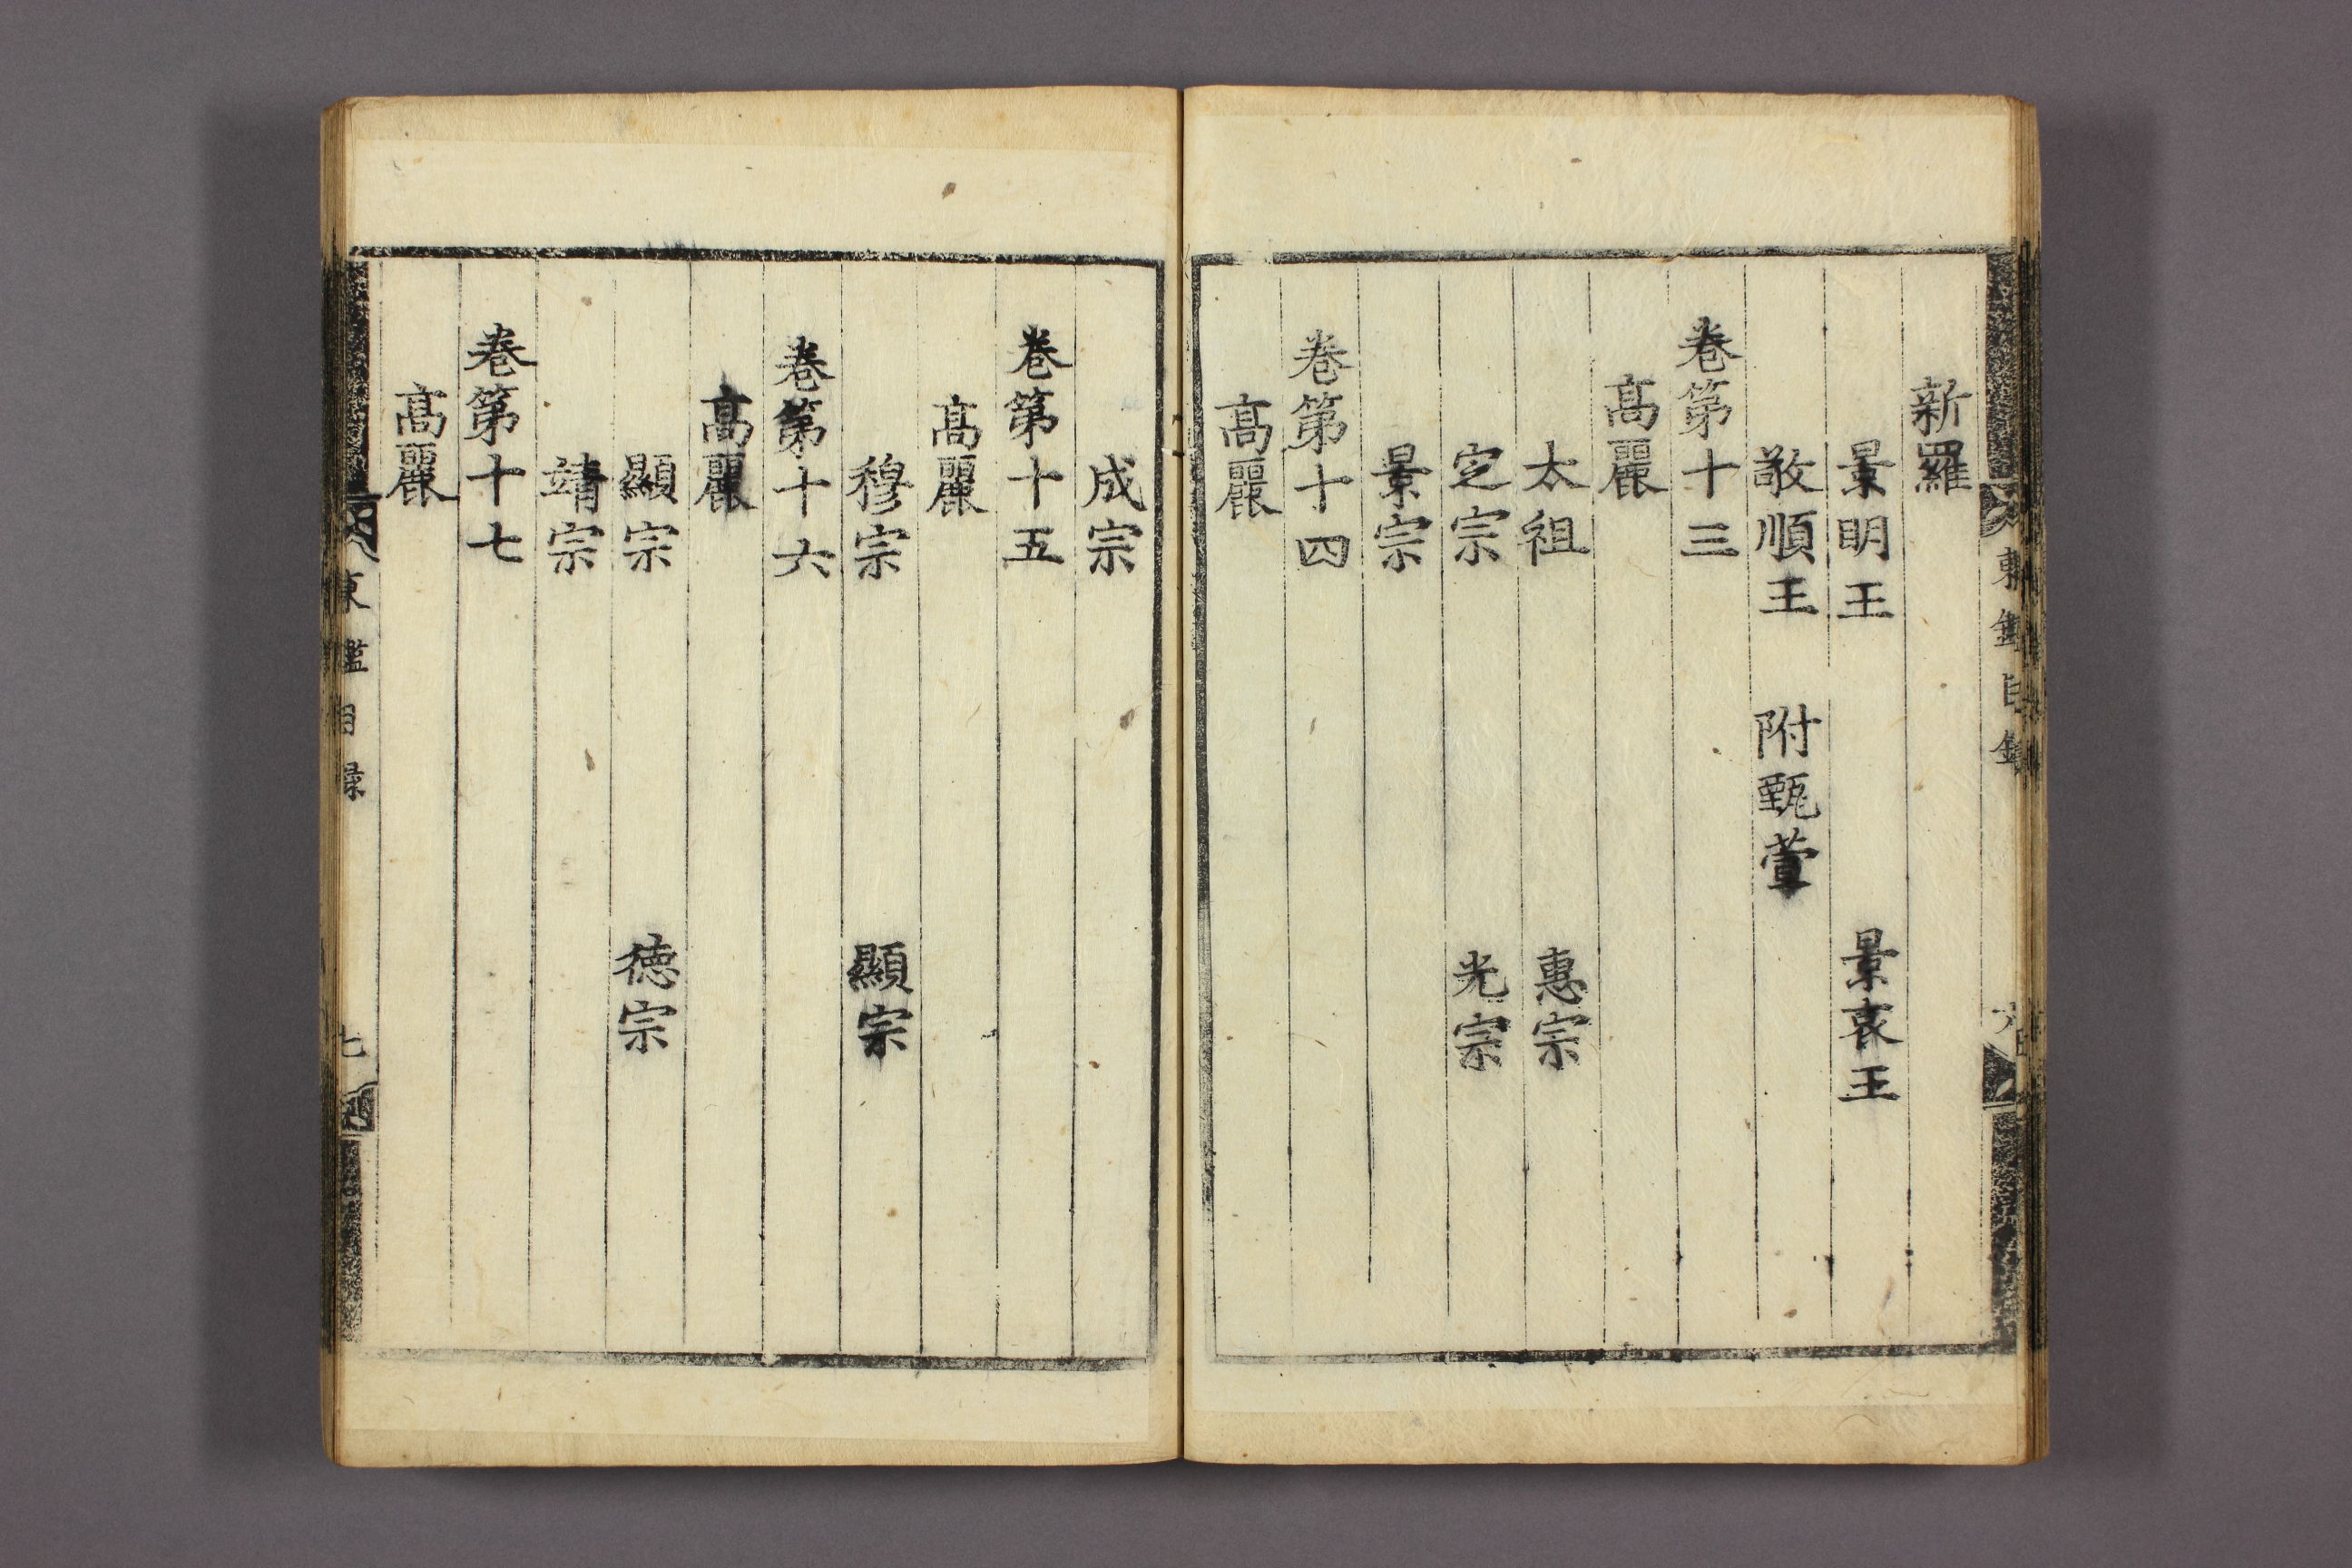 新羅
景明王 景哀王
敬順王 附甄萱
卷第十三
高麗
太祖 惠宗
定宗 光宗
景宗
卷第十四
高麗
成宗
卷第十五
高麗
穆宗 顯宗
卷第十六
高麗
顯宗 德宗
靖宗
卷第十七
高麗
東鑑目録
七